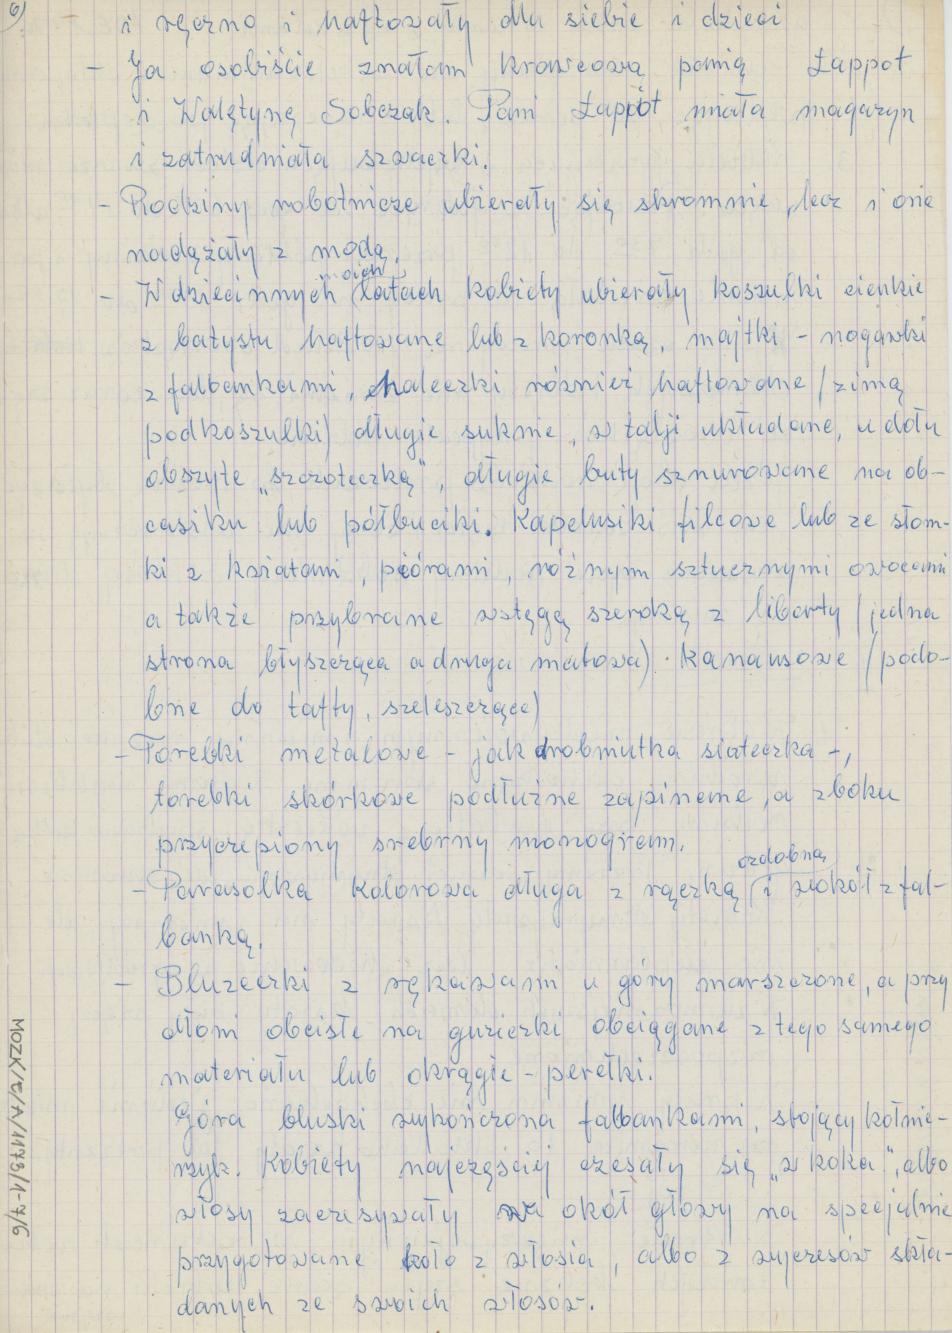 6)
i ręczno i haftowały dla siebie i dzieci
- Ja osobiście znałam krawcową panią Łappot
i Walętynę Sobczak. Pani Łappot miała magazyn
i zatrudniała szwaczki.
- Rodziny robotnicze ubierały się skromnie, lecz i one
nadążały z modą.
moich
- W dziecinnych latach kobiety ubierały koszulki cienkie
z batystu haftowane lub z koronką, majtki - nogawki
z falbankami, haleczki również haftowane /zimą
podkoszulki) długie suknie, w talji układane, u dołu
obszyte „szczoteczką", długie buty sznurowane na ob-
casiku lub półbuciki. Kapelusiki filcowe lub ze słom-
ki z kwiatami, piórami, różnymi sztucznymi owocami
a także przybrane wstęgą szeroką z liberty /jedna
strona błyszcząca a druga matowa). Kanausowe /podo-
bne do tafty, szeleszczące)
- Torebki metalowe - jak drobniutka siateczka -,
torebki skórkowe podłużne zapinane, a z boku
przyczepiony srebrny monogram.
ozdobną
- Parasolka kolorowa długa z rączką i wokół z fal-
banką.
- Bluzeczki z rękawami u góry marszczone, a przy
dłoni obcisłe na guziczki obciągane z tego samego
materiału lub okrągłe - perełki.
Góra bluski wykończona falbankami, stojący kołnie-
rzyk. Kobiety najczęściej czesały się „w koka", albo
włosy zaczesywały na okół głowy na specjalnie
przygotowane koło z włosia, albo z wyczesów skła-
danych ze swoich włosów.
MOZK/E/A/1173/1-7/6